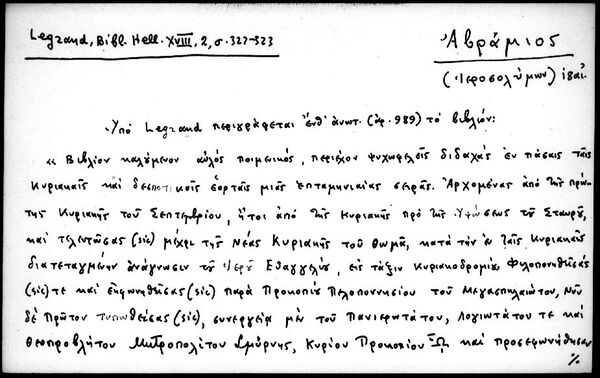 Legrand, Bibl. Hell. XVIII, 2, σ. 322-323
Ἀβράμιος
(Ἱεροσολύμων) 18αἰ.
Ὑπὸ Legrand περιγράφεται ἔνθ' ἀνωτ. (ἀρ. 989) τὸ βιβλίον:
« Βιβλίον καλύμενον αὐλὸς ποιμενικὸς, περιέχον ψυχωφελεῖς διδαχὰς ἐν πάσαις ταῖς
Κυριακαῖς καὶ δεσποτικοῖς ἑορταῖς μιᾶς ἑπταμηνιαίας σειρᾶς. Ἀρχομένας ἀπὸ τῆς πρώ-
της Κυριακῆς τοῦ Σεπτεμβρίου, ἤτοι ἀπὸ τῆς Κυριακῆς πρὸ τῆς Ὑψώσεως τοῦ Σταυρῦ,
καὶ τελευτώσας (sic) μέχρι τῆς Νέας Κυριακῆς τοῦ Θωμᾶ, κατὰ τὴν ἐν ταῖς Κυριακαῖς
διατεταγμένην ἀνάγνωσιν τῦ Ἱερῦ Εὐαγγελίυ, εἰς τάξιν κυριακοδρομίυ. Φιλοπονηθεῖσάς
(sic) τε καὶ ἐκφωνηθείσας (sic) παρὰ Προκοπίυ Πελοποννησίου τοῦ Μεγασπηλαιώτου, Νῦν
δὲ πρῶτον τυπωθείσας (sic), συνεργείᾳ μὲν τοῦ Πανιερωτάτου, Λογιωτάτου τε καὶ
Θεοπροβλήτου Μητροπολίτου Σμύρνης, Κυρίου Προκοπίου καὶ προσεφωνήθησαν
%